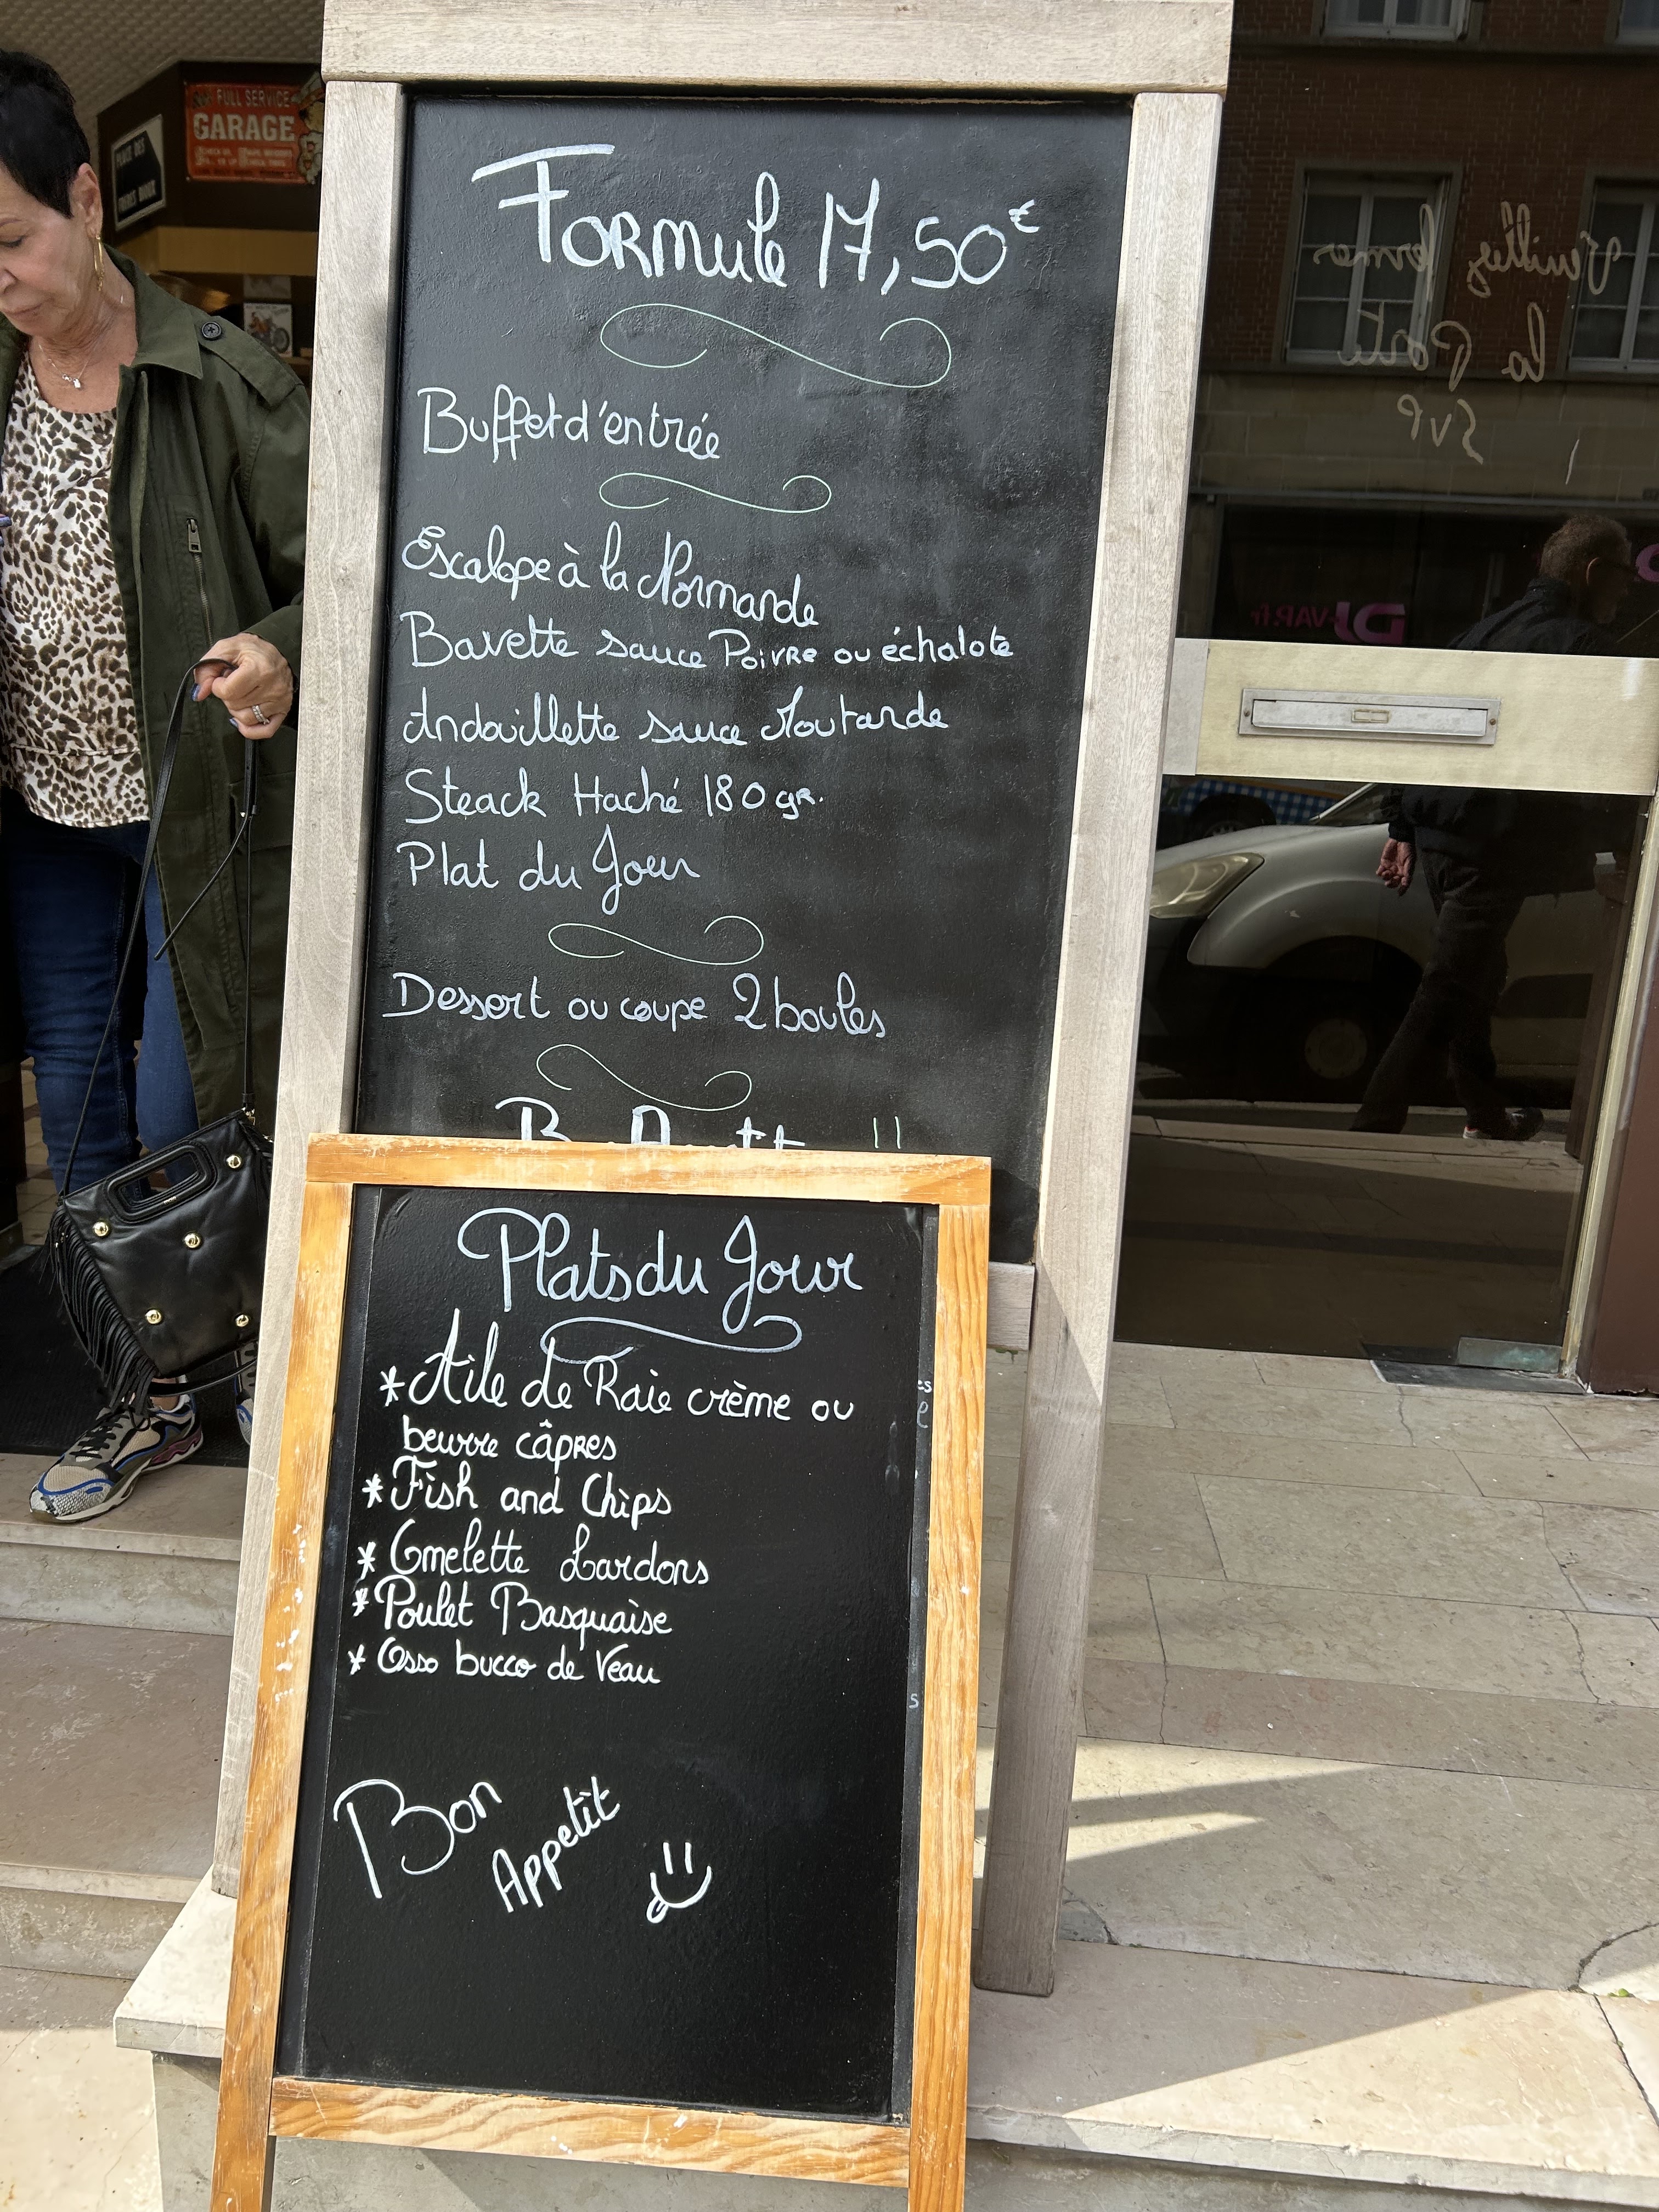 FULL SERVICE
GARAGE
Formule 17,50€
Buffet d'entrée
Escalope à la Normande
Bavette sauce Poivre ou échalote
Andouillette sauce Moutarde
Steack Haché 180 gr.
Plat du Jour
Dessert ou coupe 2 boules
Plats du Jour
*Aile de Raie crème ou
beurre câpres
*Fish and Chips
*Omelette Lardons
*Poulet Basquaise
*Osso bucco de Veau
Bon
Appetit
Veuillez fermer
la Porte
SVP